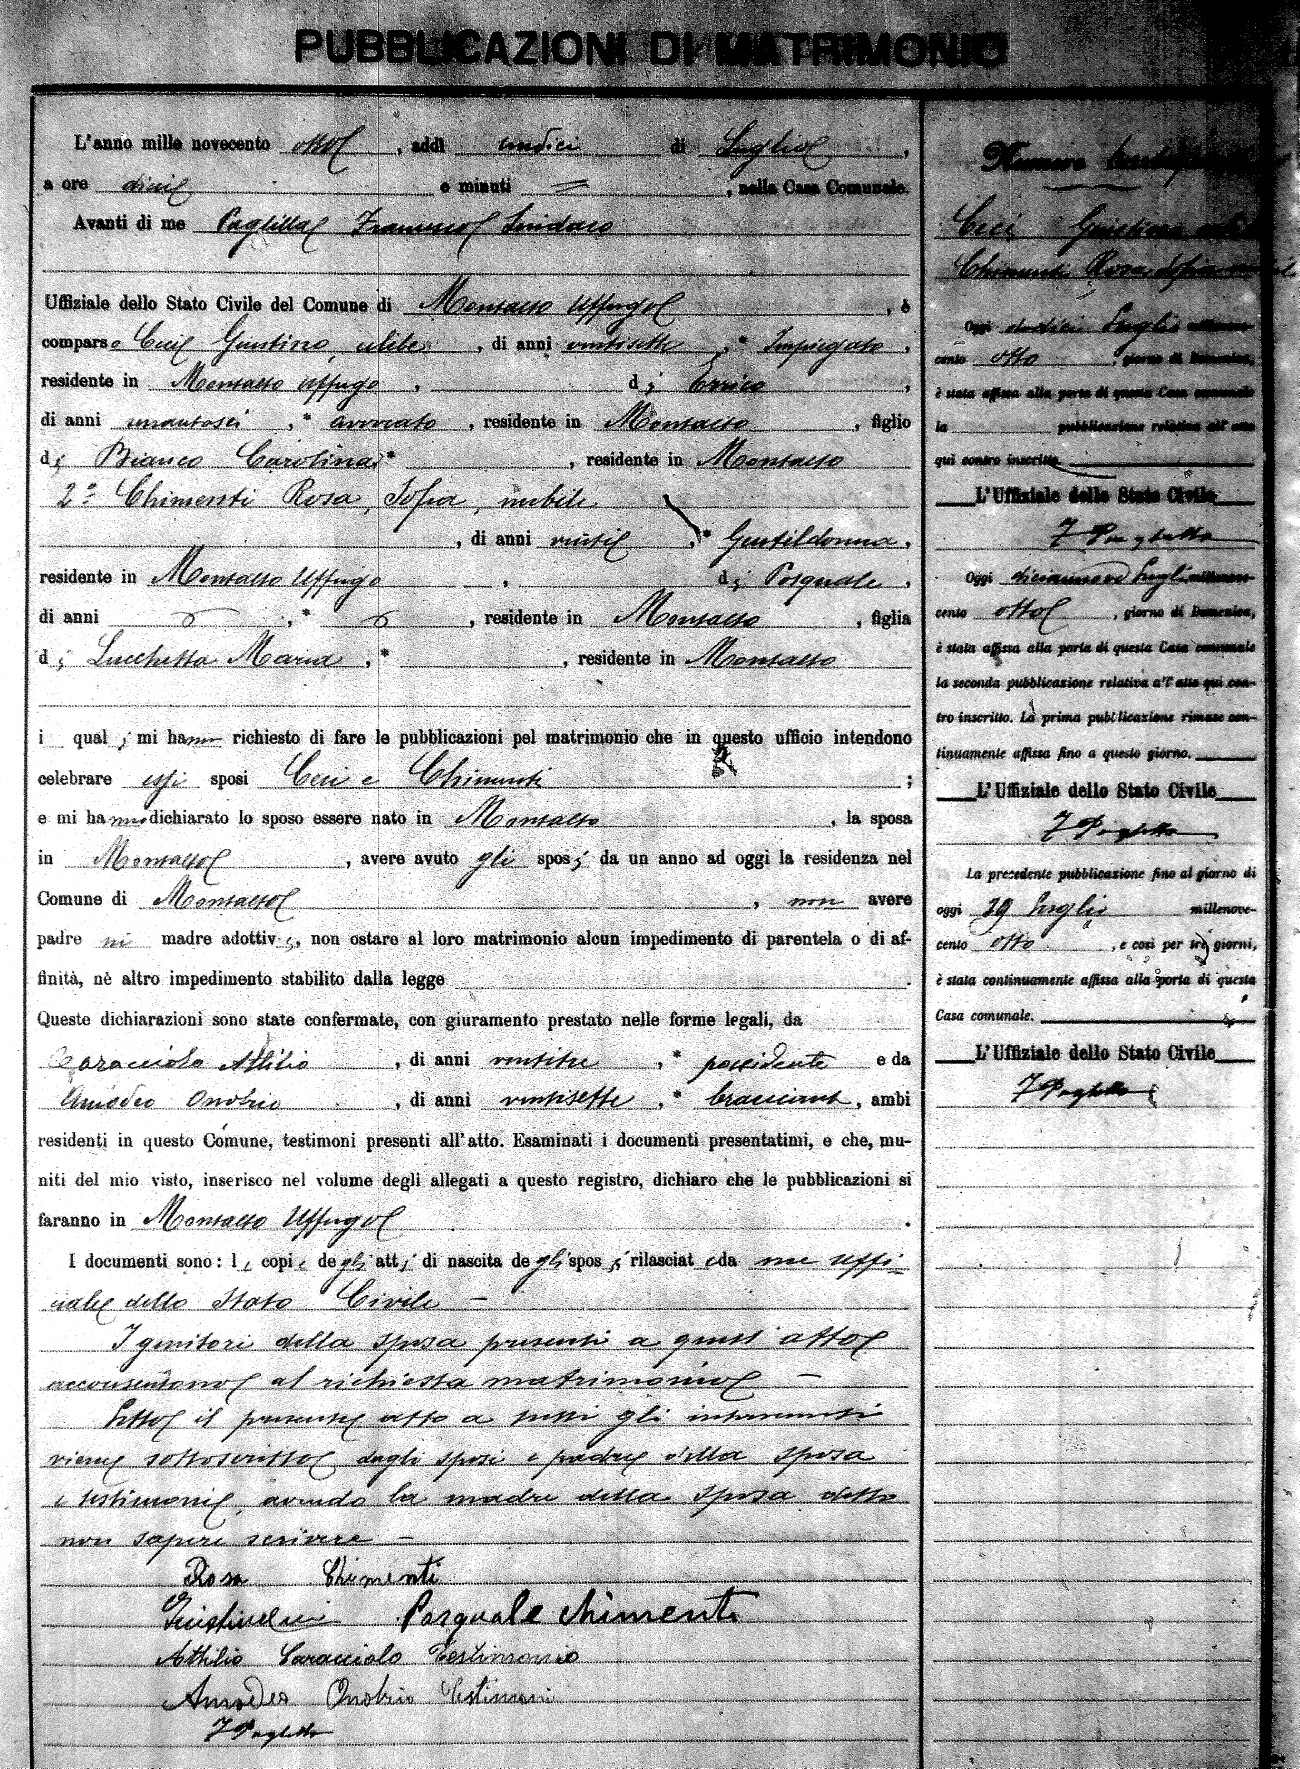 PUBBLICAZIONI DI MATRIMONIO
L'anno mille novecento otto, addì undici di Luglio,
a ore dieci e minuti =, nella Casa Comunale.
Avanti di me Francesco Sindaco
Uffiziale dello Stato Civile del Comune di Montalto Uffugo, è
comparso Ceci Giustino celibe, di anni ventisette, * Impiegato,
residente in Montalto Uffugo, di Errico,
di anni, * avvocato, residente in Montalto, figlio
di Bianco Carolina, *, residente in Montalto
2º Chimenti Rosa, Sofia, nubile
, di anni venti, * Gentildonna,
residente in Montalto Uffugo, di Pasquale,
di anni, *, residente in Montalto, figlia
di Lucchetta Maria, *, residente in Montalto
i quali mi hanno richiesto di fare le pubblicazioni pel matrimonio che in questo ufficio intendono
celebrare essi sposi Ceci e Chimenti;
e mi hanno dichiarato lo sposo essere nato in Montalto, la sposa
in Montalto, avere avuto gli sposi da un anno ad oggi la residenza nel
Comune di Montalto, non avere
padre nè madre adottivi, non ostare al loro matrimonio alcun impedimento di parentela o di af-
finità, nè altro impedimento stabilito dalla legge.
Queste dichiarazioni sono state confermate, con giuramento prestato nelle forme legali, da
Caracciolo Attilio, di anni ventitre, * possidente e da
Amodeo Onofrio, di anni ventisette, * bracciante, ambi
residenti in questo Comune, testimoni presenti all'atto. Esaminati i documenti presentatimi, e che, mu-
niti del mio visto, inserisco nel volume degli allegati a questo registro, dichiaro che le pubblicazioni si
faranno in Montalto Uffugo.
I documenti sono: le copie degli atti di nascita degli sposi rilasciate da me uffi=
ciale dello Stato Civile —
I genitori della sposa presenti a quest'atto
acconsentono al richiesto matrimonio —
Letto il presente atto a tutti gli intervenuti
viene sottoscritto dagli sposi e padre della sposa
e testimoni, avendo la madre della sposa detto
non sapere scrivere —
Rosa Chimenti
Pasquale Chimenti
Attilio Caracciolo Testimonio
Amodeo Onofrio Testimoni
Numero
Ceci Giustino
Chimenti Rosa Sofia
Oggi dodici Luglio millenove-
cento otto, giorno di Domenica,
è stata affissa alla porta di questa Casa comunale
la pubblicazione relativa all'atto
qui contro inscritto.
L'Uffiziale dello Stato Civile
Oggi diciannove Luglio millenove-
cento otto, giorno di Domenica,
è stata affissa alla porta di questa Casa comunale
la seconda pubblicazione relativa all'atto qui con-
tro inscritto. La prima pubblicazione rimase con-
tinuamente affissa fino a questo giorno.
L'Uffiziale dello Stato Civile
La precedente pubblicazione fino al giorno di
oggi Luglio millenove-
cento otto, e così per tre giorni,
è stata continuamente affissa alla porta di questa
Casa comunale.
L'Uffiziale dello Stato Civile